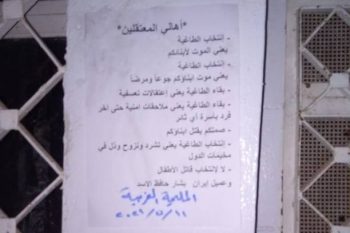 *أهالي المعتقلين*
- إنتخاب الطاغية
يعني الموت لأبنائكم
- إنتخاب الطاغية
يعني موت ابناؤكم جوعاً ومرضاً
- بقاء الطاغية يعني إعتقالات تعسفية
- بقاء الطاغية يعني ملاحقات امنية حتى اخر
فرد بأسرة أي ثائر
- صمتكم يقتل ابناؤكم
- إنتخاب الطاغية يعني تشرد ونزوح وذل في
مخيمات الدول
- لا لإنتخاب قاتل الأطفال
وعميل إيران بشار حافظ الاسد
المليحة الغربية
٢٠٢١/٥/١١